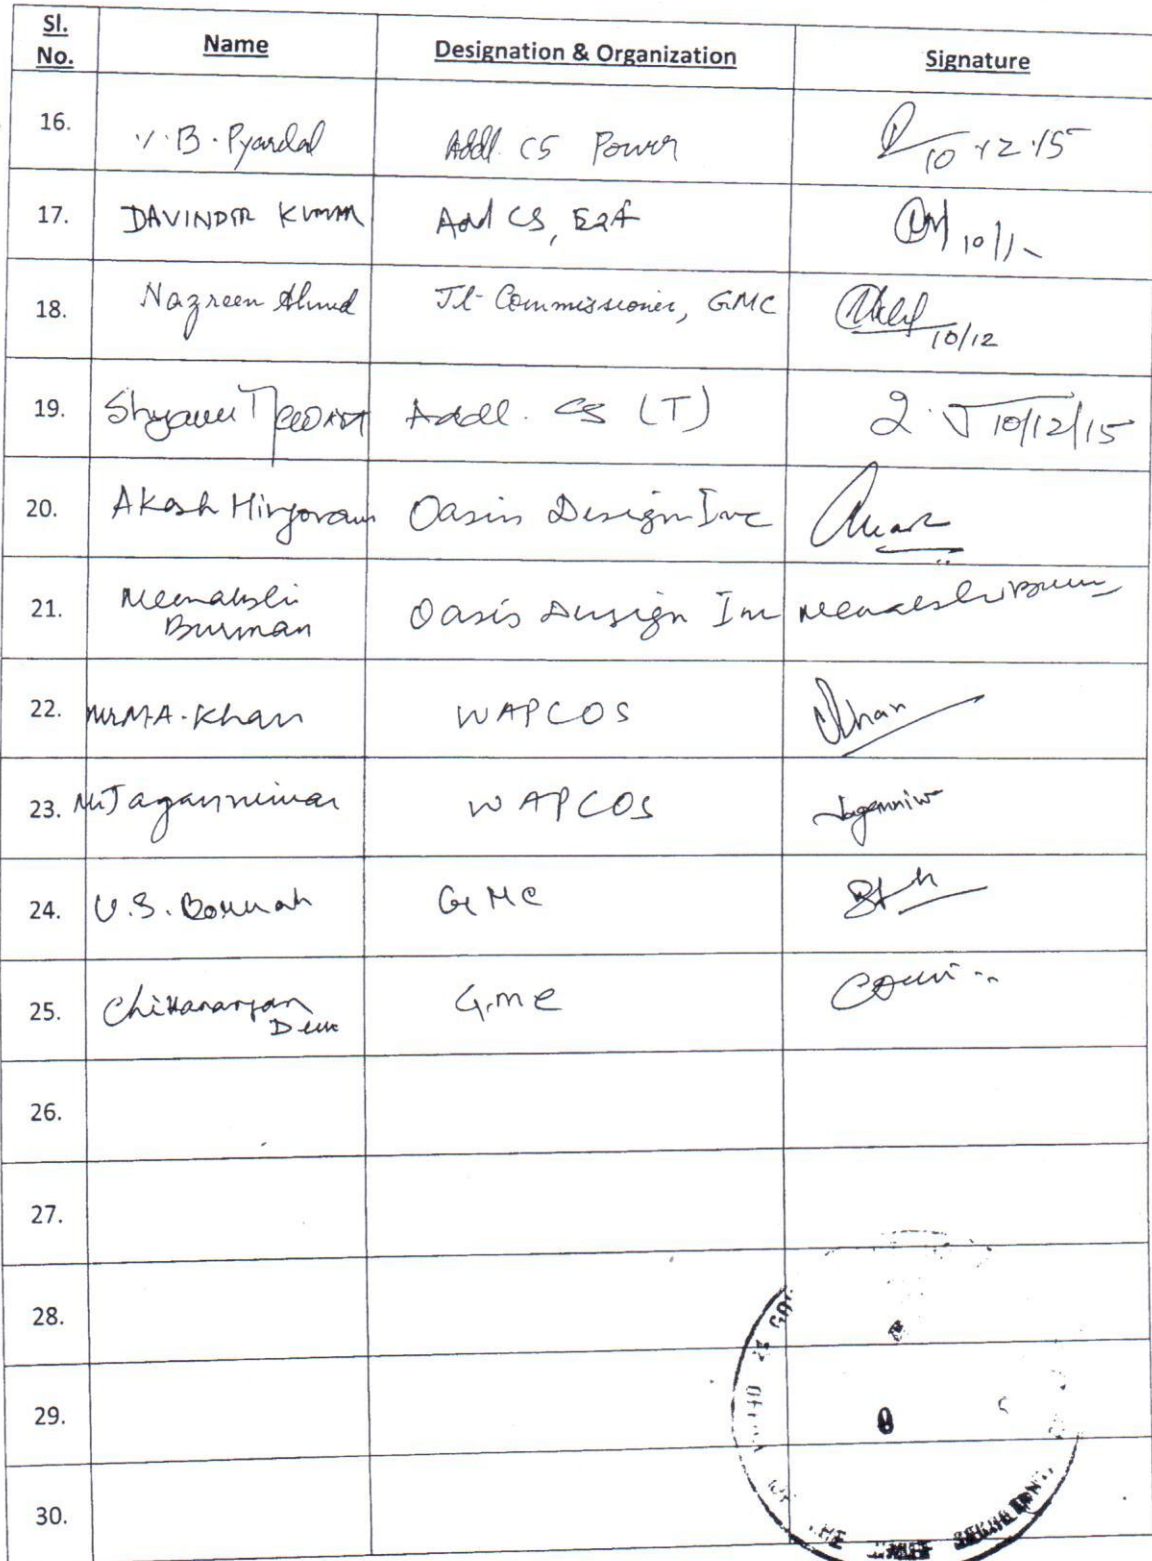 Sl. No. Name Designation & Organization Signature
16. V. B. Pyarelal Addl. CS Power 10.12.15
17. DAVINDER KUMAR Add CS, E&F 10/12
18. Nazreen Ahmed Jt-Commissioner, GMC 10/12
19. Shyam Addl. CS (T) 10/12/15
20. Akash Hingorani Oasis Design Inc
21. Meenakshi Oasis Design Inc Meenakshi
Burman
22. Mr M.A. Khan WAPCOS Khan
23. Mr Jaganniwas WAPCOS Jaganniwas
24. U.S. Boruah GMC
25. Chittaranjan G.M.C
26.
27.
28.
29.
30.